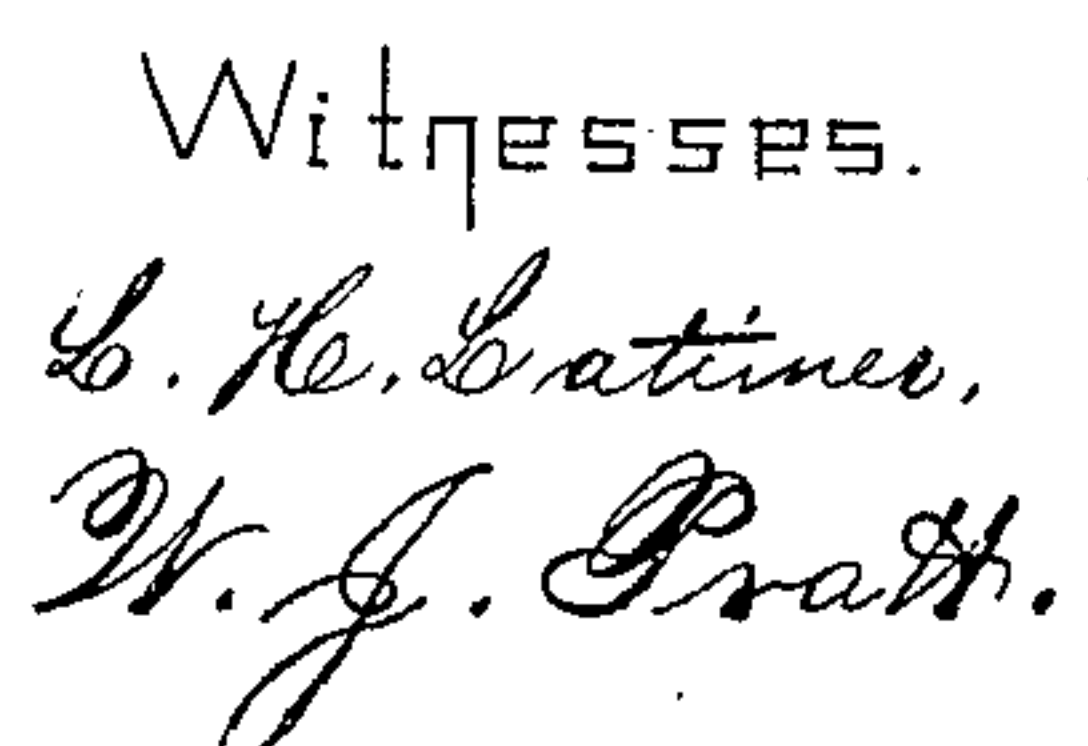 Witnesses.
L. H. Latimer,
W. J. Pratt.